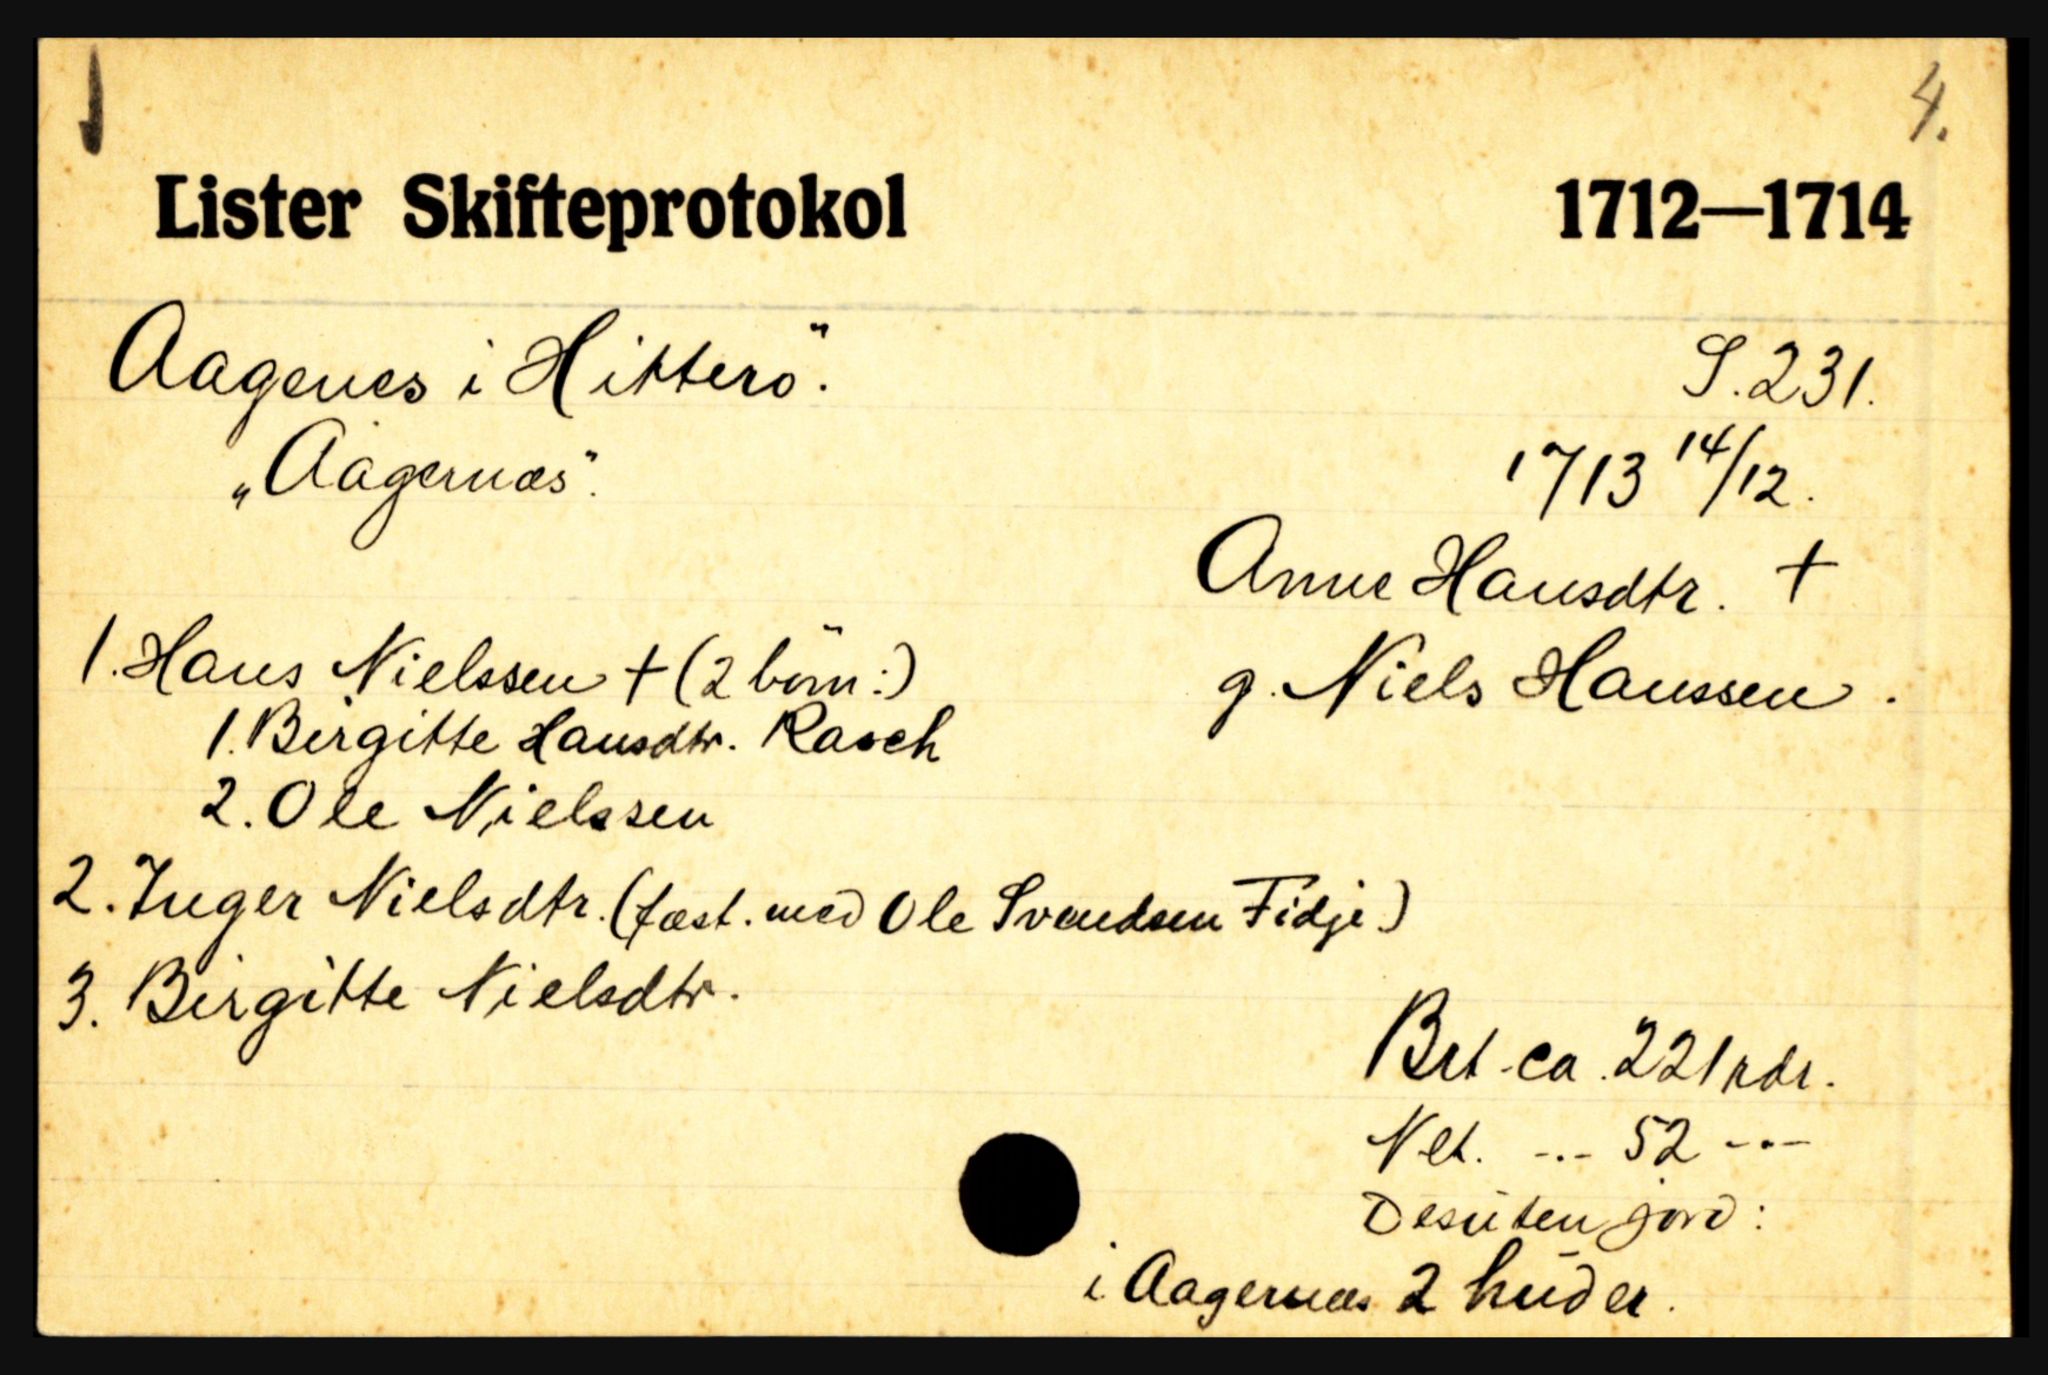 4.
Lister Skifteprotokol 1712—1714
Aagenes i Hitterö. S. 231.
„Aagernæs". 1713 14/12.
Anne Hansdtr. +
1. Hans Nielssen + (2 börn:) g. Niels Hanssen.
1. Birgitte Hansdtr. Rasch
2. Ole Nielssen
2. Inger Nielsdtr. (fæst. med Ole Svendsen Fidje.)
3. Birgitte Nielsdtr.
Brt. ca. 221 rdr.
Net. -.- 52 -.-
Desuten jord:
i Aagernæs 2 huder.